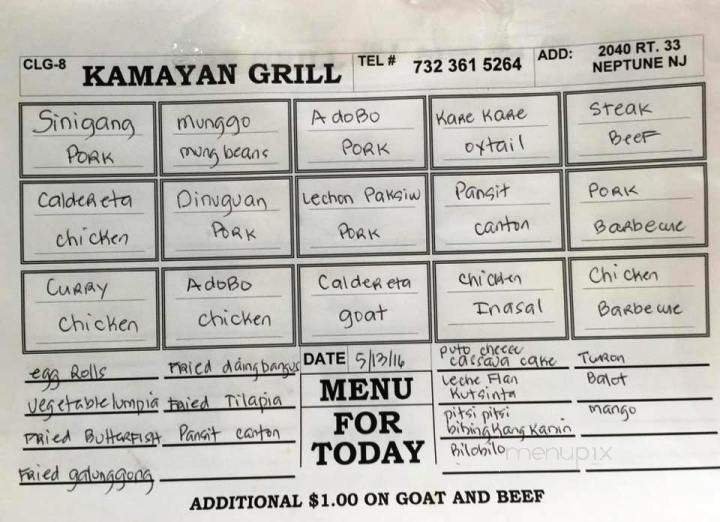 CLG-8
KAMAYAN GRILL
TEL # 732 361 5264
ADD: 2040 RT. 33
NEPTUNE NJ
Sinigang
PORK
munggo
mung beans
AdoBo
PORK
KARE KARE
oxtail
Steak
Beef
CaldeReta
chicken
Dinuguan
PORK
Lechon Paksiw
PORK
Pansit
canton
PORK
BarBecue
CURRY
Chicken
AdoBo
chicken
CaldeReta
goat
chicken
Inasal
Chicken
BarBecue
egg Rolls
vegetable lumpia
FRied ButteRFisH
FRied galunggong
FRied daing bangus
FRied Tilapia
Pansit canton
DATE 5/13/16
MENU
FOR
TODAY
puto cheese
cassava cake
Leche Flan
Kutsinta
pitsi pitsi
bibingkang kanin
Bilobilo
TuRon
Balot
mango
menupix
ADDITIONAL $1.00 ON GOAT AND BEEF